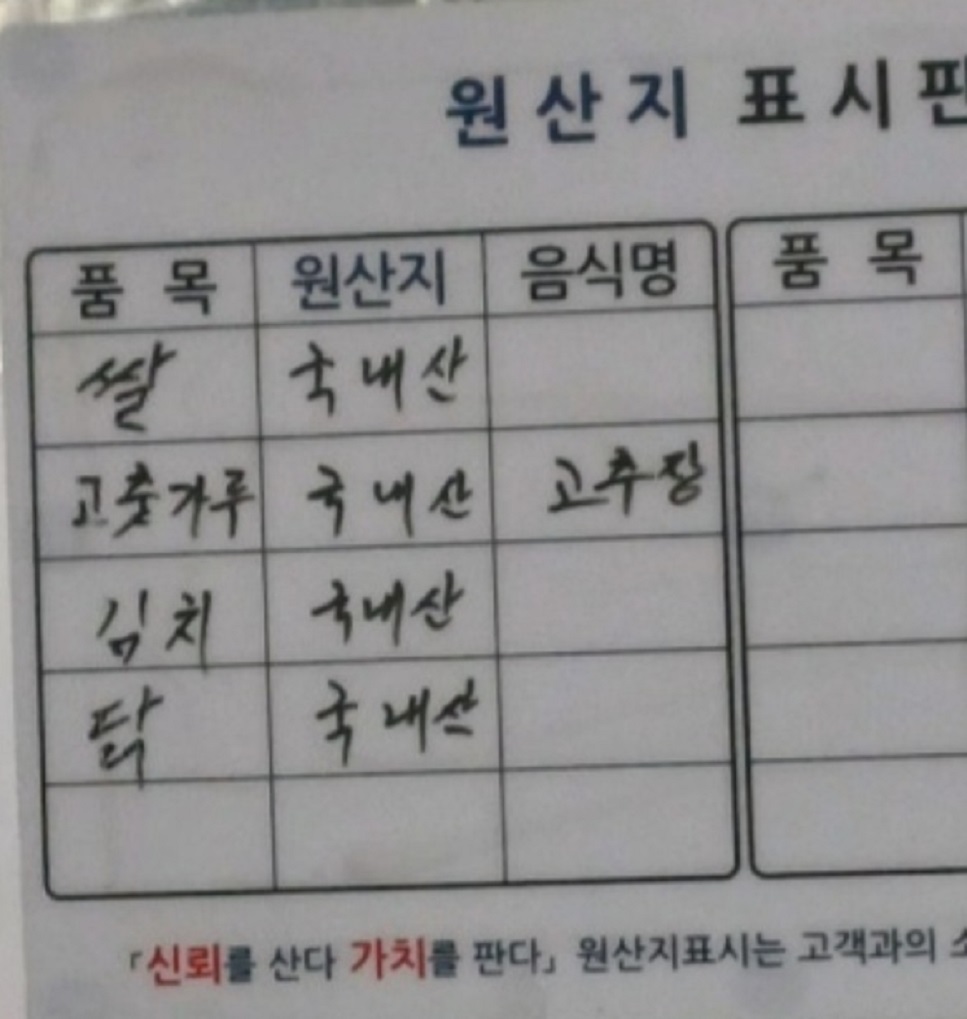 원산지 표시판
품 목 원산지 음식명 품 목
쌀 국내산
고춧가루 국내산 고추장
김치 국내산
닭 국내산
「신뢰를 산다 가치를 판다」 원산지표시는 고객과의